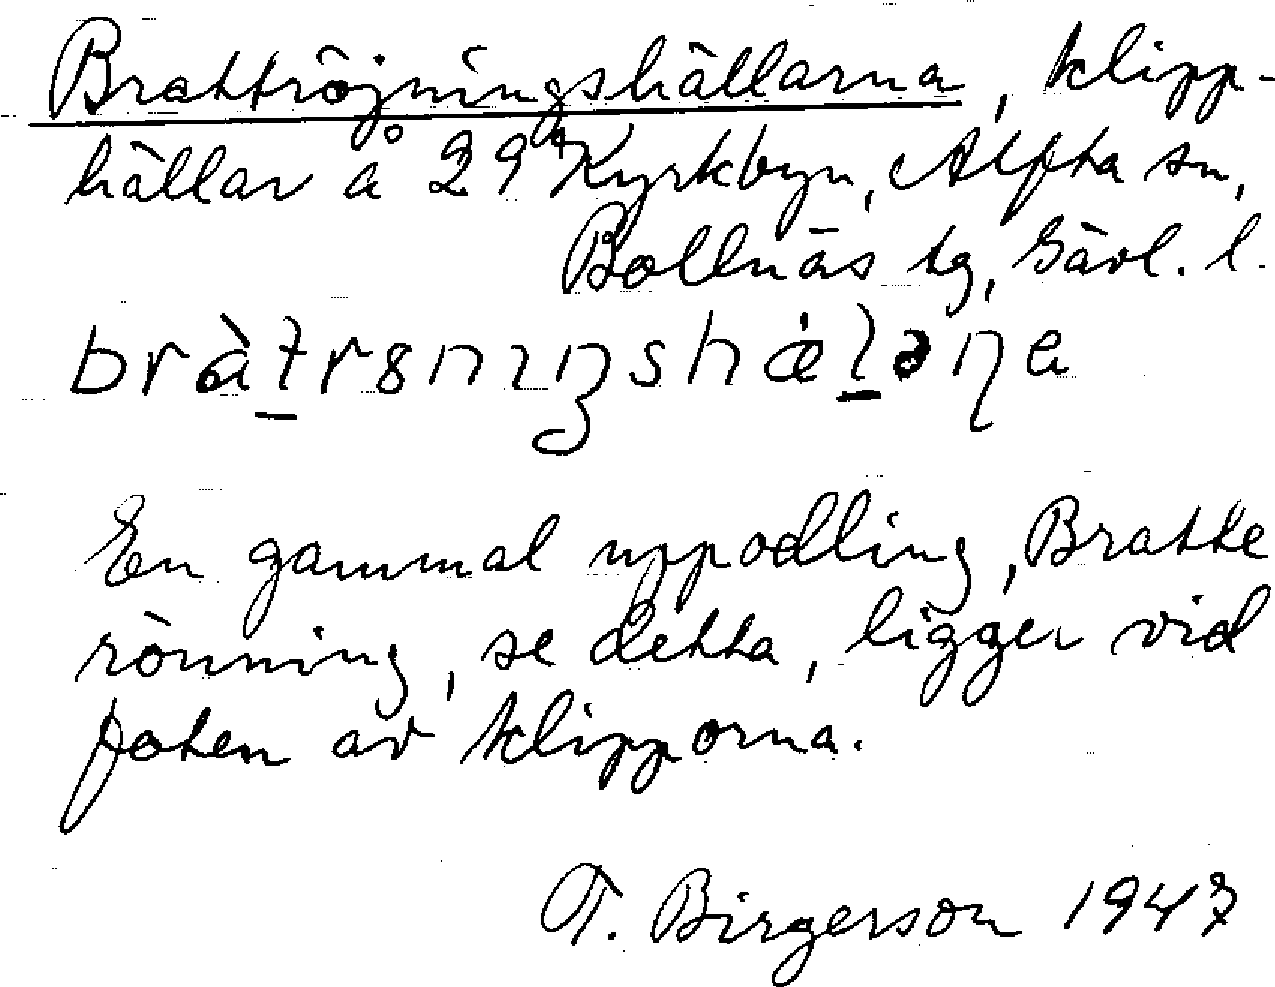 Brattröjningshällarna, klipp-
hällar å 29⁴ Kyrkbyn, Alfta sn,
Bollnäs tg, Gävl. l.
bràt̠rɞnıŋshæ̀l̠əɳa
En gammal uppodling, Bratte
rönning, se detta, ligger vid
foten av klipporna.
T. Birgerson 1947